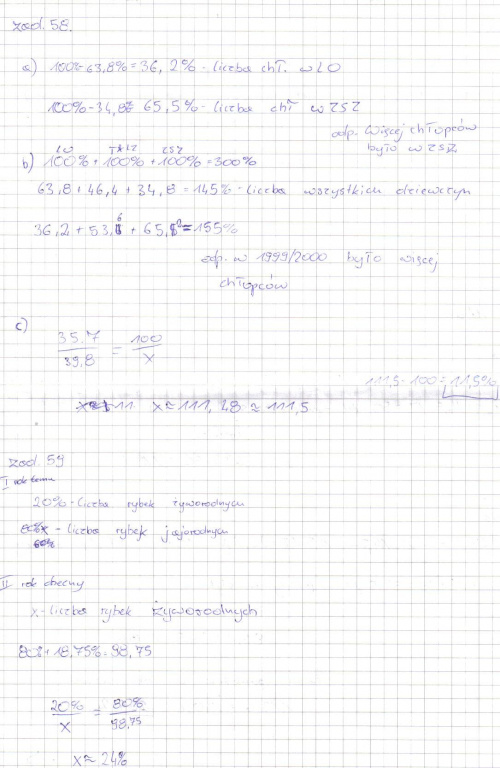 zad. 58.
a) 100% - 63,8% = 36,2% - liczba chł. w LO
100% - 34,8% 65,5% - liczba chł w ZSZ
odp. Więcej chłopców
było w ZSZ.
LO ZSZ
b) 100% + 100% + 100% = 300%
63,8 + 46,4 + 34,8 = 145% - liczba wszystkich dziewczyn
36,2 + 53,6 + 65,2 = 155%
odp. w 1999/2000 było więcej
chłopców
c)
35.7 / 39,8 = 100 / x
111,5 - 100 = 11,5%
x ≈ 111,28 ≈ 111,5
zad. 59
I rok temu
20% - liczba rybek żyworodnych
80% - liczba rybek jajorodnych
II rok obecny
x - liczba rybek żyworodnych
80% + 18,75% = 98,75
20% / x = 80% / 98,75
x ≈ 24%